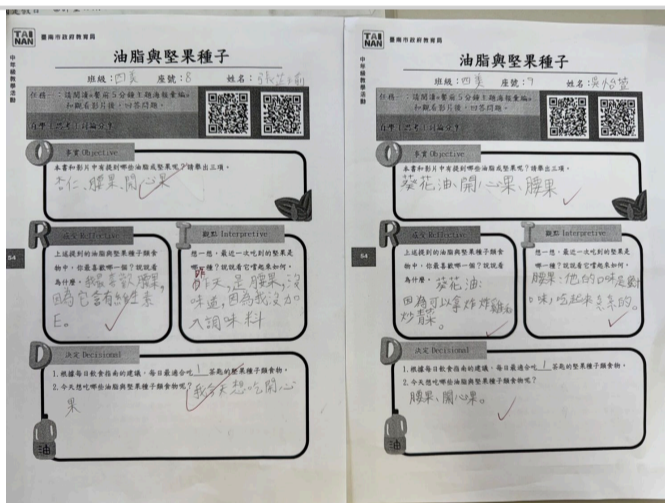 TAI
NAN
臺南市政府教育局
中年級教學活動
油脂與堅果種子
班級:四美 座號:8 姓名:
任務一:請閱讀
和觀看影片後,回答問題。
自學 思考 討論分享
O
事實 Objective
本書和影片中有提到哪些油脂或堅果呢?請舉出三項。
杏仁、腰果、開心果
R
感受 Reflective
上述提到的油脂與堅果種子類食
物中,你最喜歡哪一個?說說看
為什麼。我最喜歡腰果,
因為它含有維生素
E。
I
觀點 Interpretive
想一想,最近一次吃到的堅果是
哪一種?說說看它嚐起來如何。
昨天,是腰果,沒
味道,因為我沒加
入調味料
54
D
決定 Decisional
1.根據每日飲食指南的建議,每日最適合吃 1 茶匙的堅果種子類食物。
2.今天想吃哪些油脂與堅果種子類食物呢?我今天想吃開心
果
油
TAI
NAN
臺南市政府教育局
中年級教學活動
油脂與堅果種子
班級:四美 座號:9 姓名:吳怡萱
任務一:請閱讀
和觀看影片後,回答問題。
自學 思考 討論分享
O
事實 Objective
本書和影片中有提到哪些油脂或堅果呢?請舉出三項。
葵花油、開心果、腰果
R
感受 Reflective
上述提到的油脂與堅果種子類食
物中,你最喜歡哪一個?說說看
為什麼。葵花油:
因為可以拿炸炸雞和
炒青菜。
I
觀點 Interpretive
想一想,最近一次吃到的堅果是
哪一種?說說看它嚐起來如何。
腰果:他的口味是
口味,吃起來的。
54
D
決定 Decisional
1.根據每日飲食指南的建議,每日最適合吃 1 茶匙的堅果種子類食物。
2.今天想吃哪些油脂與堅果種子類食物呢?
腰果、開心果。
油